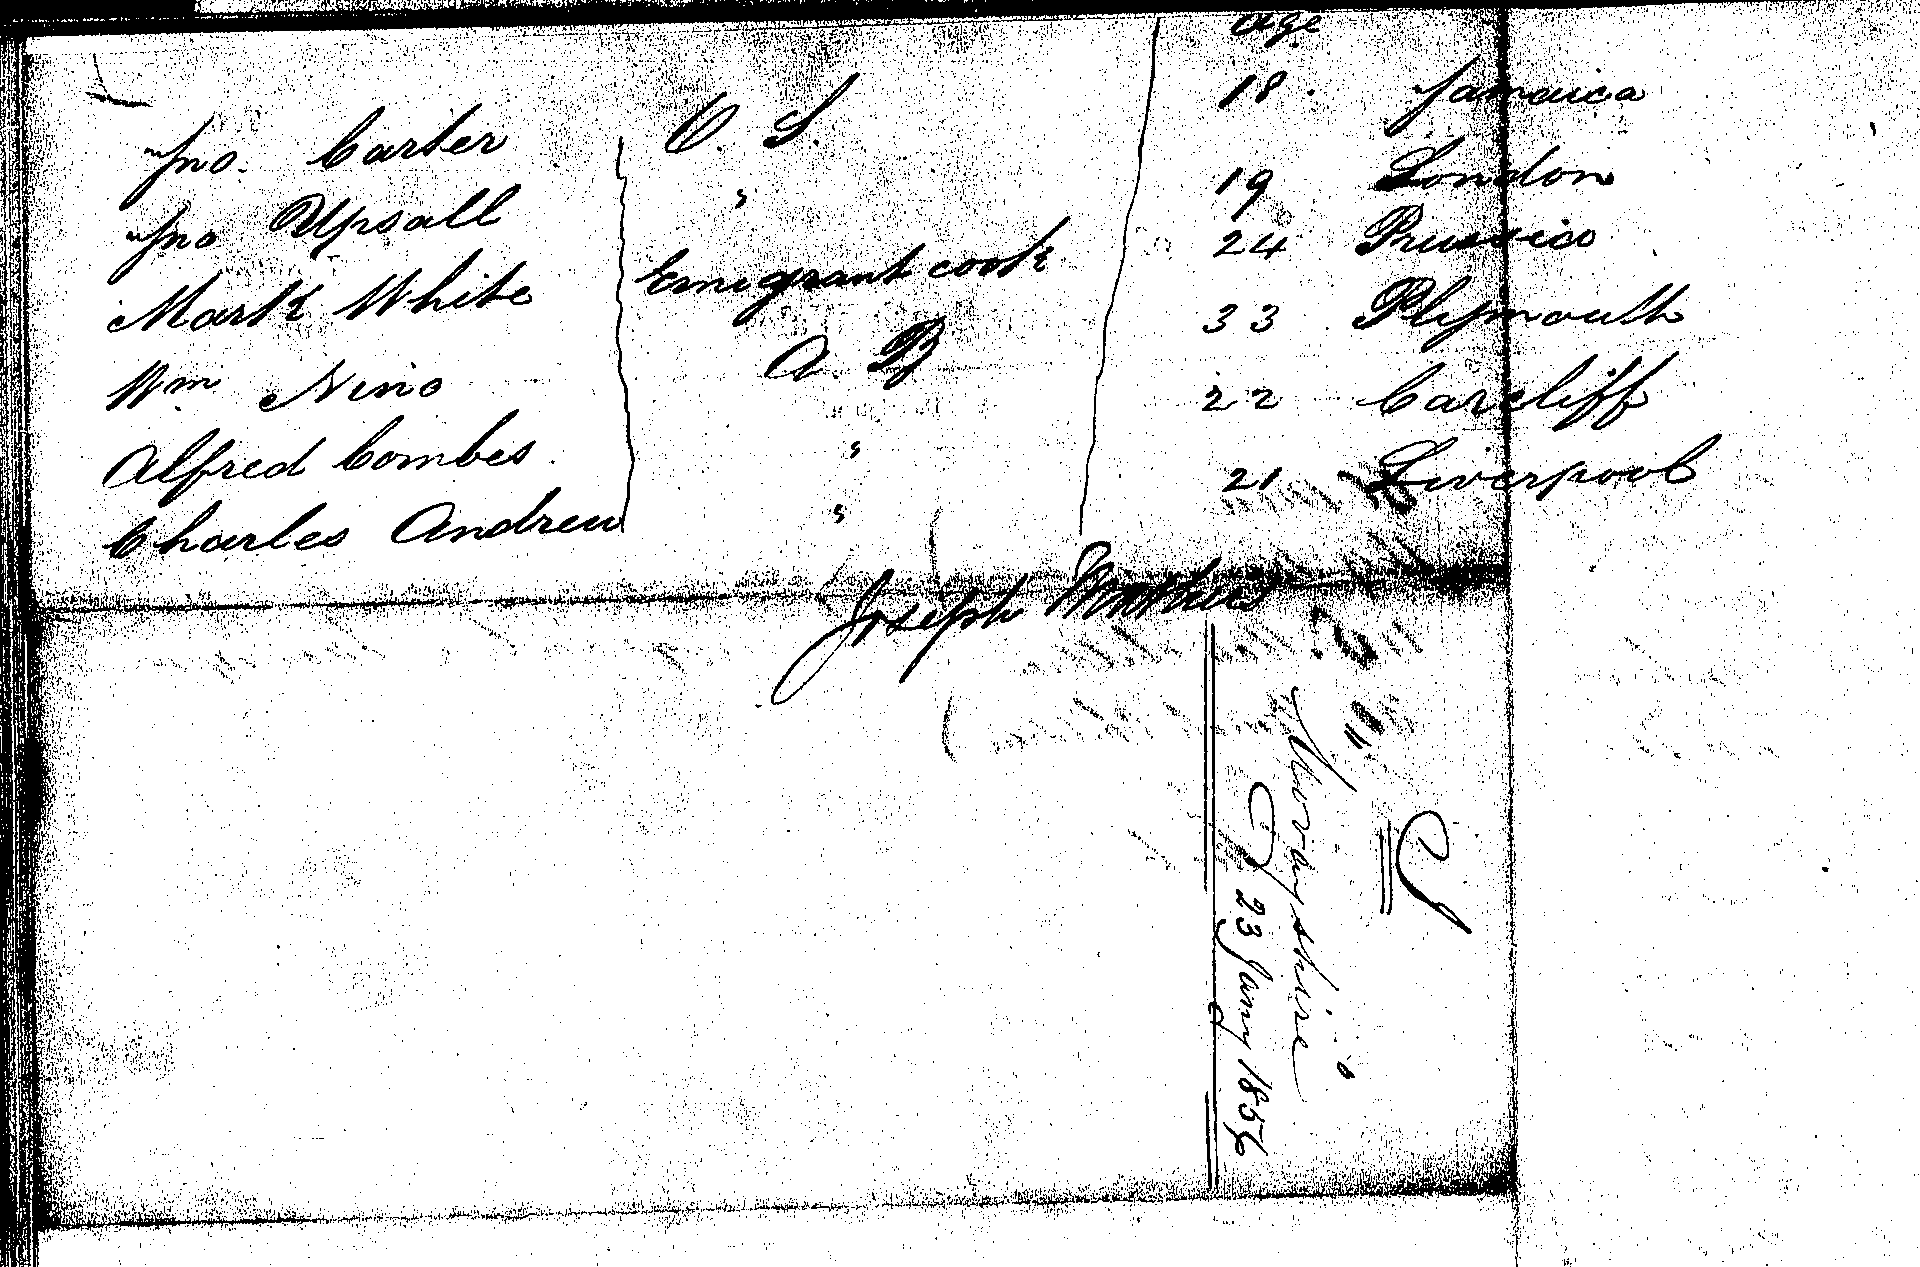 Age
Jno. Carter O. S. 18. Jamaica
Jno Upsall " 19 London
Mark White Emigrant cook 24 Prussia
Wm Nino A. B 33 Plymouth
Alfred Combes " 22 Cardiff
Charles Andrew " 21 Liverpool
Joseph Mathews
Morayshire
23 Jany 1856